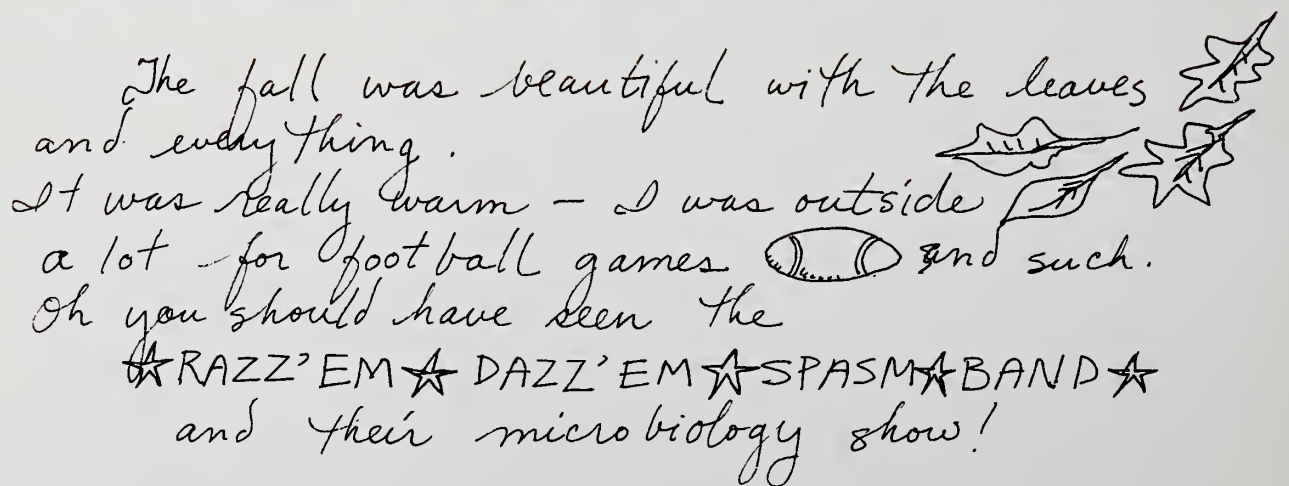 The fall was beautiful with the leaves
and everything.
It was really warm – I was outside
a lot – for football games and such.
Oh you should have seen the
☆RAZZ'EM☆ DAZZ'EM☆SPASM☆BAND☆
and their microbiology show!